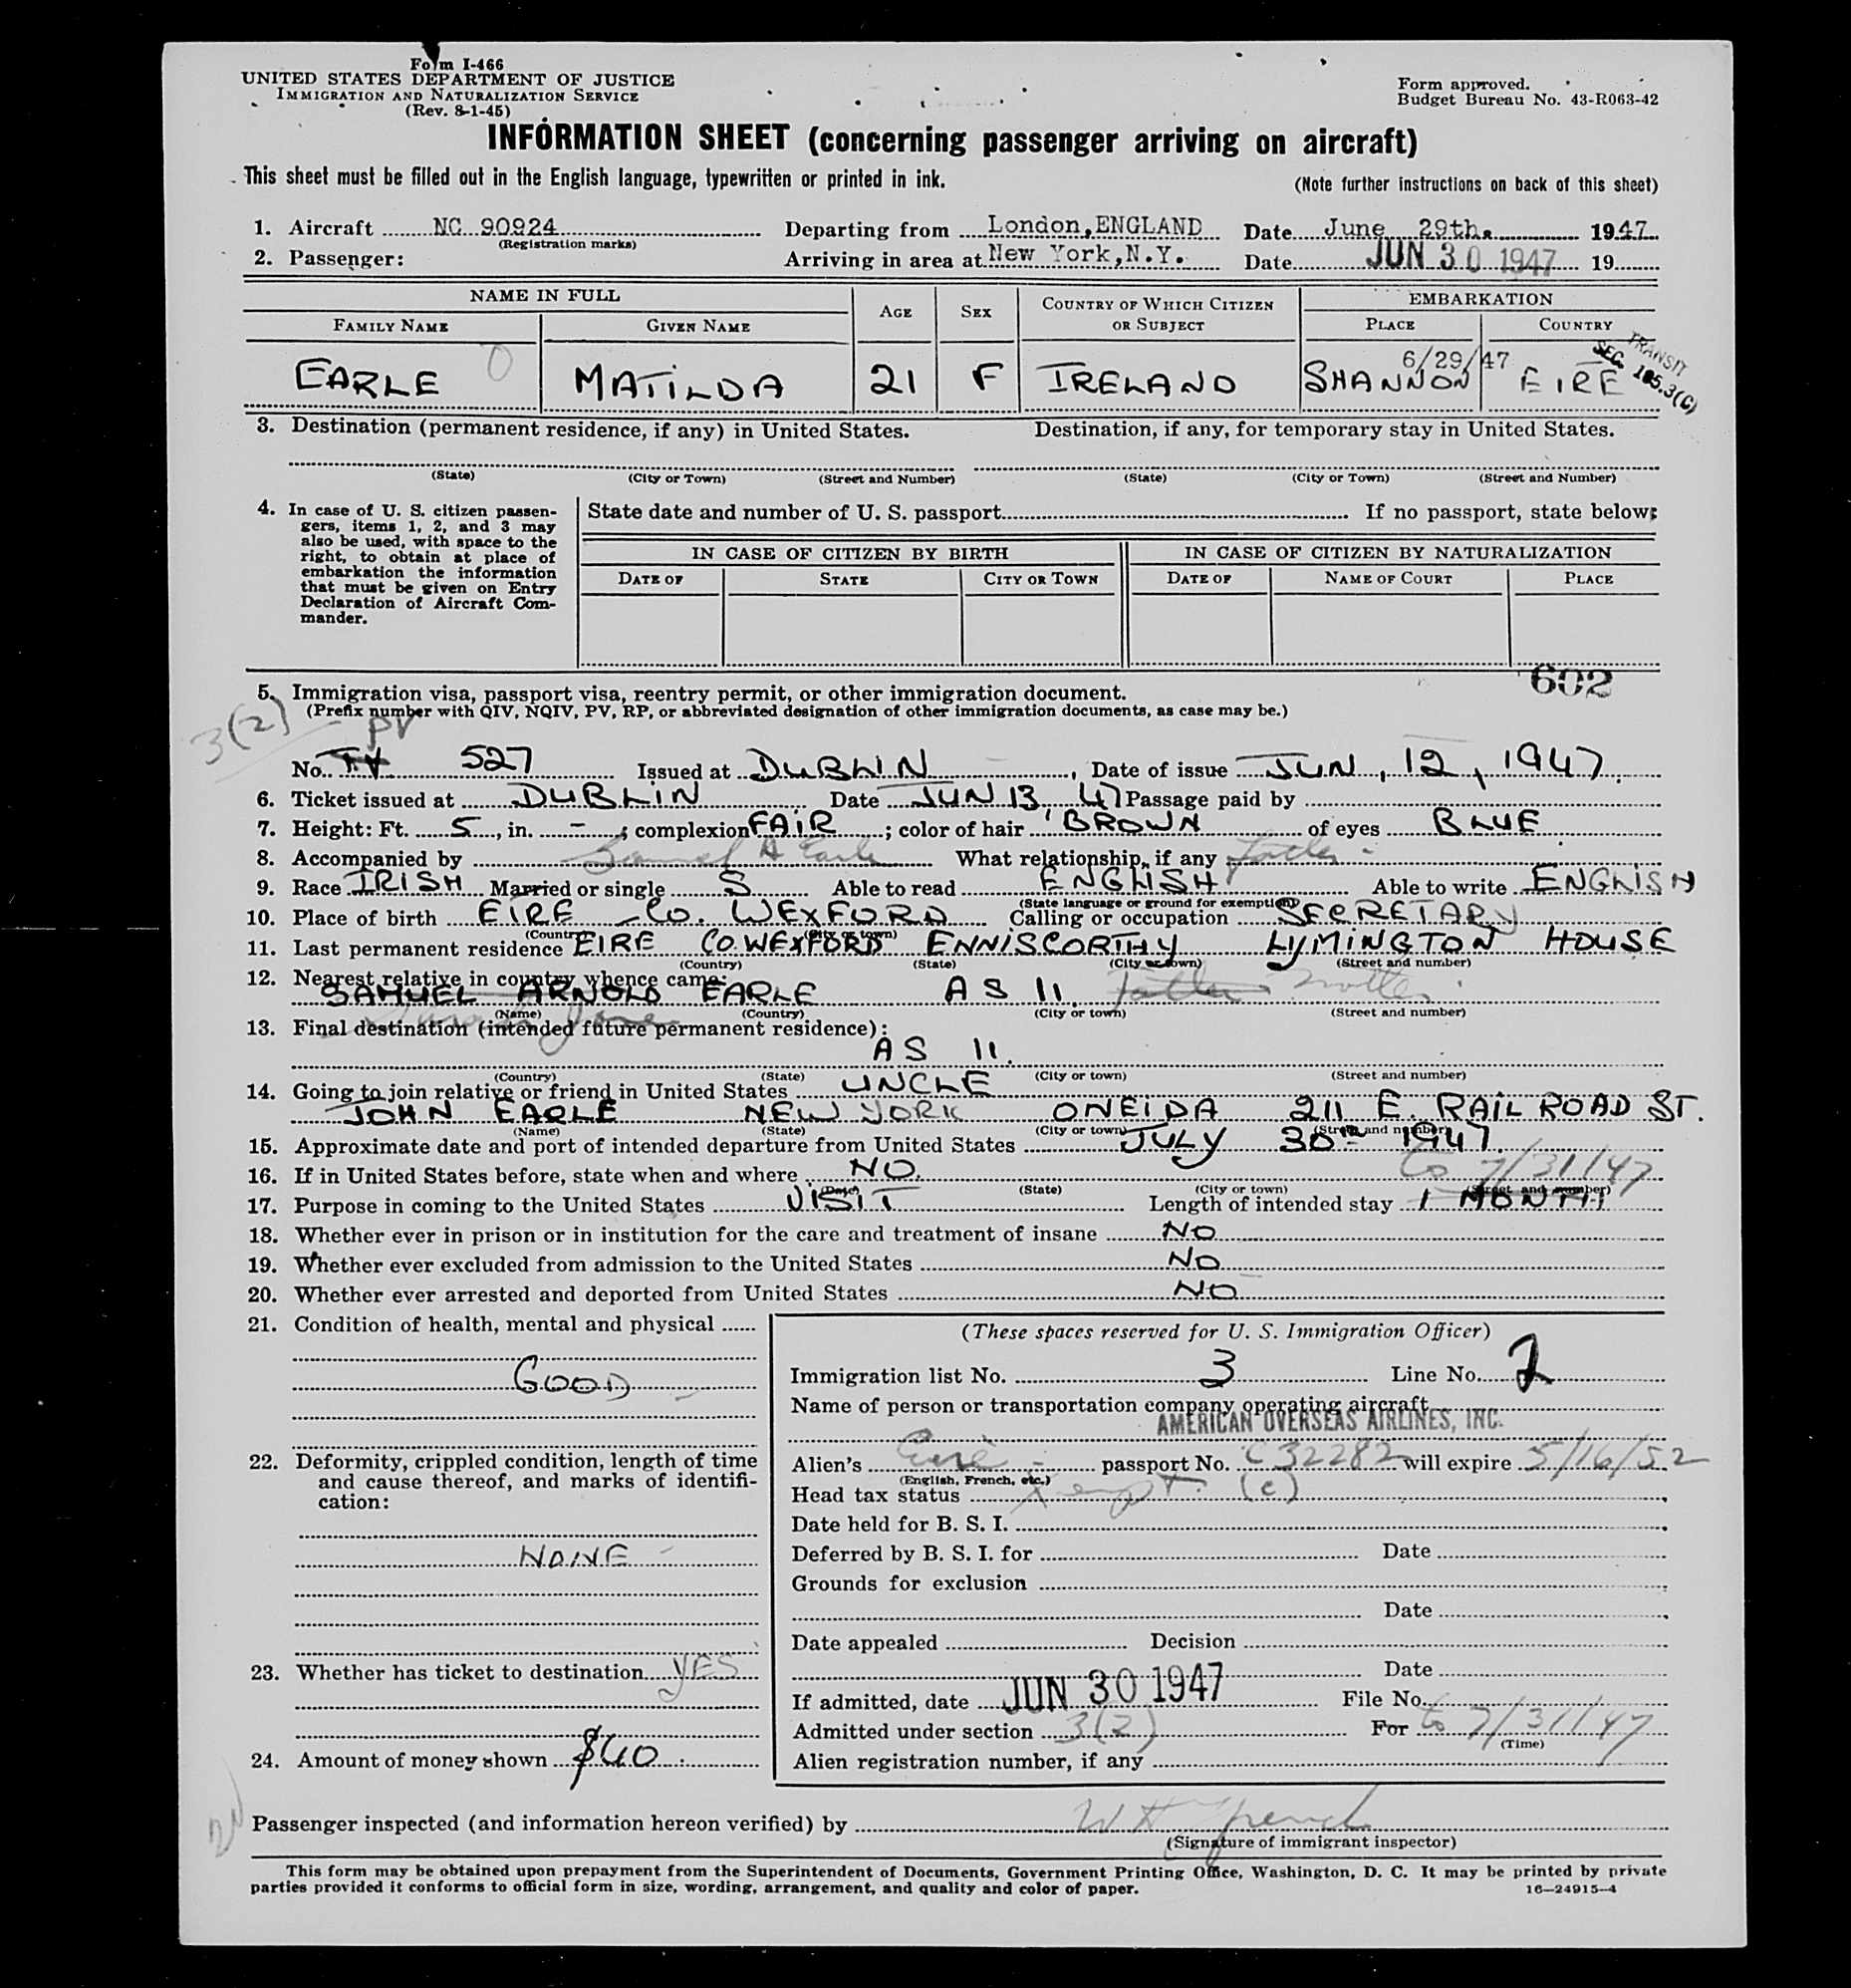 Form I-466
UNITED STATES DEPARTMENT OF JUSTICE
IMMIGRATION AND NATURALIZATION SERVICE
(Rev. 8-1-45)
Form approved.
Budget Bureau No. 43-R063-42
INFORMATION SHEET (concerning passenger arriving on aircraft)
This sheet must be filled out in the English language, typewritten or printed in ink.
(Note further instructions on back of this sheet)
1. Aircraft NC 90924 Departing from London, ENGLAND Date June 29th. 1947
(Registration marks)
2. Passenger: Arriving in area at New York, N.Y. Date JUN 30 1947 19
NAME IN FULL AGE SEX COUNTRY OF WHICH CITIZEN OR SUBJECT EMBARKATION
FAMILY NAME GIVEN NAME PLACE COUNTRY
6/29/47 TRANSIT SEC. 105.3(C)
EARLE MATILDA 21 F IRELAND SHANNON EIRE
3. Destination (permanent residence, if any) in United States. Destination, if any, for temporary stay in United States.
(State) (City or Town) (Street and Number) (State) (City or Town) (Street and Number)
4. In case of U. S. citizen passen-
gers, items 1, 2, and 3 may
also be used, with space to the
right, to obtain at place of
embarkation the information
that must be given on Entry
Declaration of Aircraft Com-
mander.
State date and number of U. S. passport If no passport, state below:
IN CASE OF CITIZEN BY BIRTH IN CASE OF CITIZEN BY NATURALIZATION
DATE OF STATE CITY OR TOWN DATE OF NAME OF COURT PLACE
602
5. Immigration visa, passport visa, reentry permit, or other immigration document.
(Prefix number with QIV, NQIV, PV, RP, or abbreviated designation of other immigration documents, as case may be.)
3(2) PV
No. 527 Issued at DUBLIN, Date of issue JUN, 12, 1947.
6. Ticket issued at DUBLIN Date JUN 13 47 Passage paid by
7. Height: Ft. 5, in. -; complexion FAIR; color of hair BROWN of eyes BLUE
8. Accompanied by Samuel A Earle What relationship, if any father
9. Race IRISH Married or single S Able to read ENGLISH Able to write ENGLISH
(State language or ground for exemption)
10. Place of birth EIRE CO. WEXFORD Calling or occupation SECRETARY
(Country) (City or town)
11. Last permanent residence EIRE CO. WEXFORD ENNISCORTHY LYMINGTON HOUSE
(Country) (State) (City or town) (Street and number)
12. Nearest relative in country whence came:
SAMUEL ARNOLD EARLE AS 11. Father Mother
(Name) (Country) (City or town) (Street and number)
13. Final destination (intended future permanent residence):
AS 11.
(Country) (State) (City or town) (Street and number)
14. Going to join relative or friend in United States UNCLE
JOHN EARLE NEW YORK ONEIDA 211 E. RAIL ROAD ST.
(Name) (State) (City or town) (Street and number)
15. Approximate date and port of intended departure from United States JULY 30TH 1947
16. If in United States before, state when and where NO. to 7/31/47
(Date) (State) (City or town) (Street and number)
17. Purpose in coming to the United States VISIT Length of intended stay 1 MONTH
18. Whether ever in prison or in institution for the care and treatment of insane NO
19. Whether ever excluded from admission to the United States NO
20. Whether ever arrested and deported from United States NO
21. Condition of health, mental and physical
GOOD
22. Deformity, crippled condition, length of time
and cause thereof, and marks of identifi-
cation:
NONE
23. Whether has ticket to destination YES
24. Amount of money shown $40
(These spaces reserved for U. S. Immigration Officer)
Immigration list No. 3 Line No. 2
Name of person or transportation company operating aircraft
AMERICAN OVERSEAS AIRLINES, INC.
Alien's Eire passport No. C32282 will expire 5/16/52
(English, French, etc.)
Head tax status Xempt. (c)
Date held for B. S. I.
Deferred by B. S. I. for Date
Grounds for exclusion
Date
Date appealed Decision
Date
If admitted, date JUN 30 1947 File No.
Admitted under section 3(2) For to 7/31/47
(Time)
Alien registration number, if any
Passenger inspected (and information hereon verified) by
(Signature of immigrant inspector)
This form may be obtained upon prepayment from the Superintendent of Documents, Government Printing Office, Washington, D. C. It may be printed by private
parties provided it conforms to official form in size, wording, arrangement, and quality and color of paper. 16—24915-4